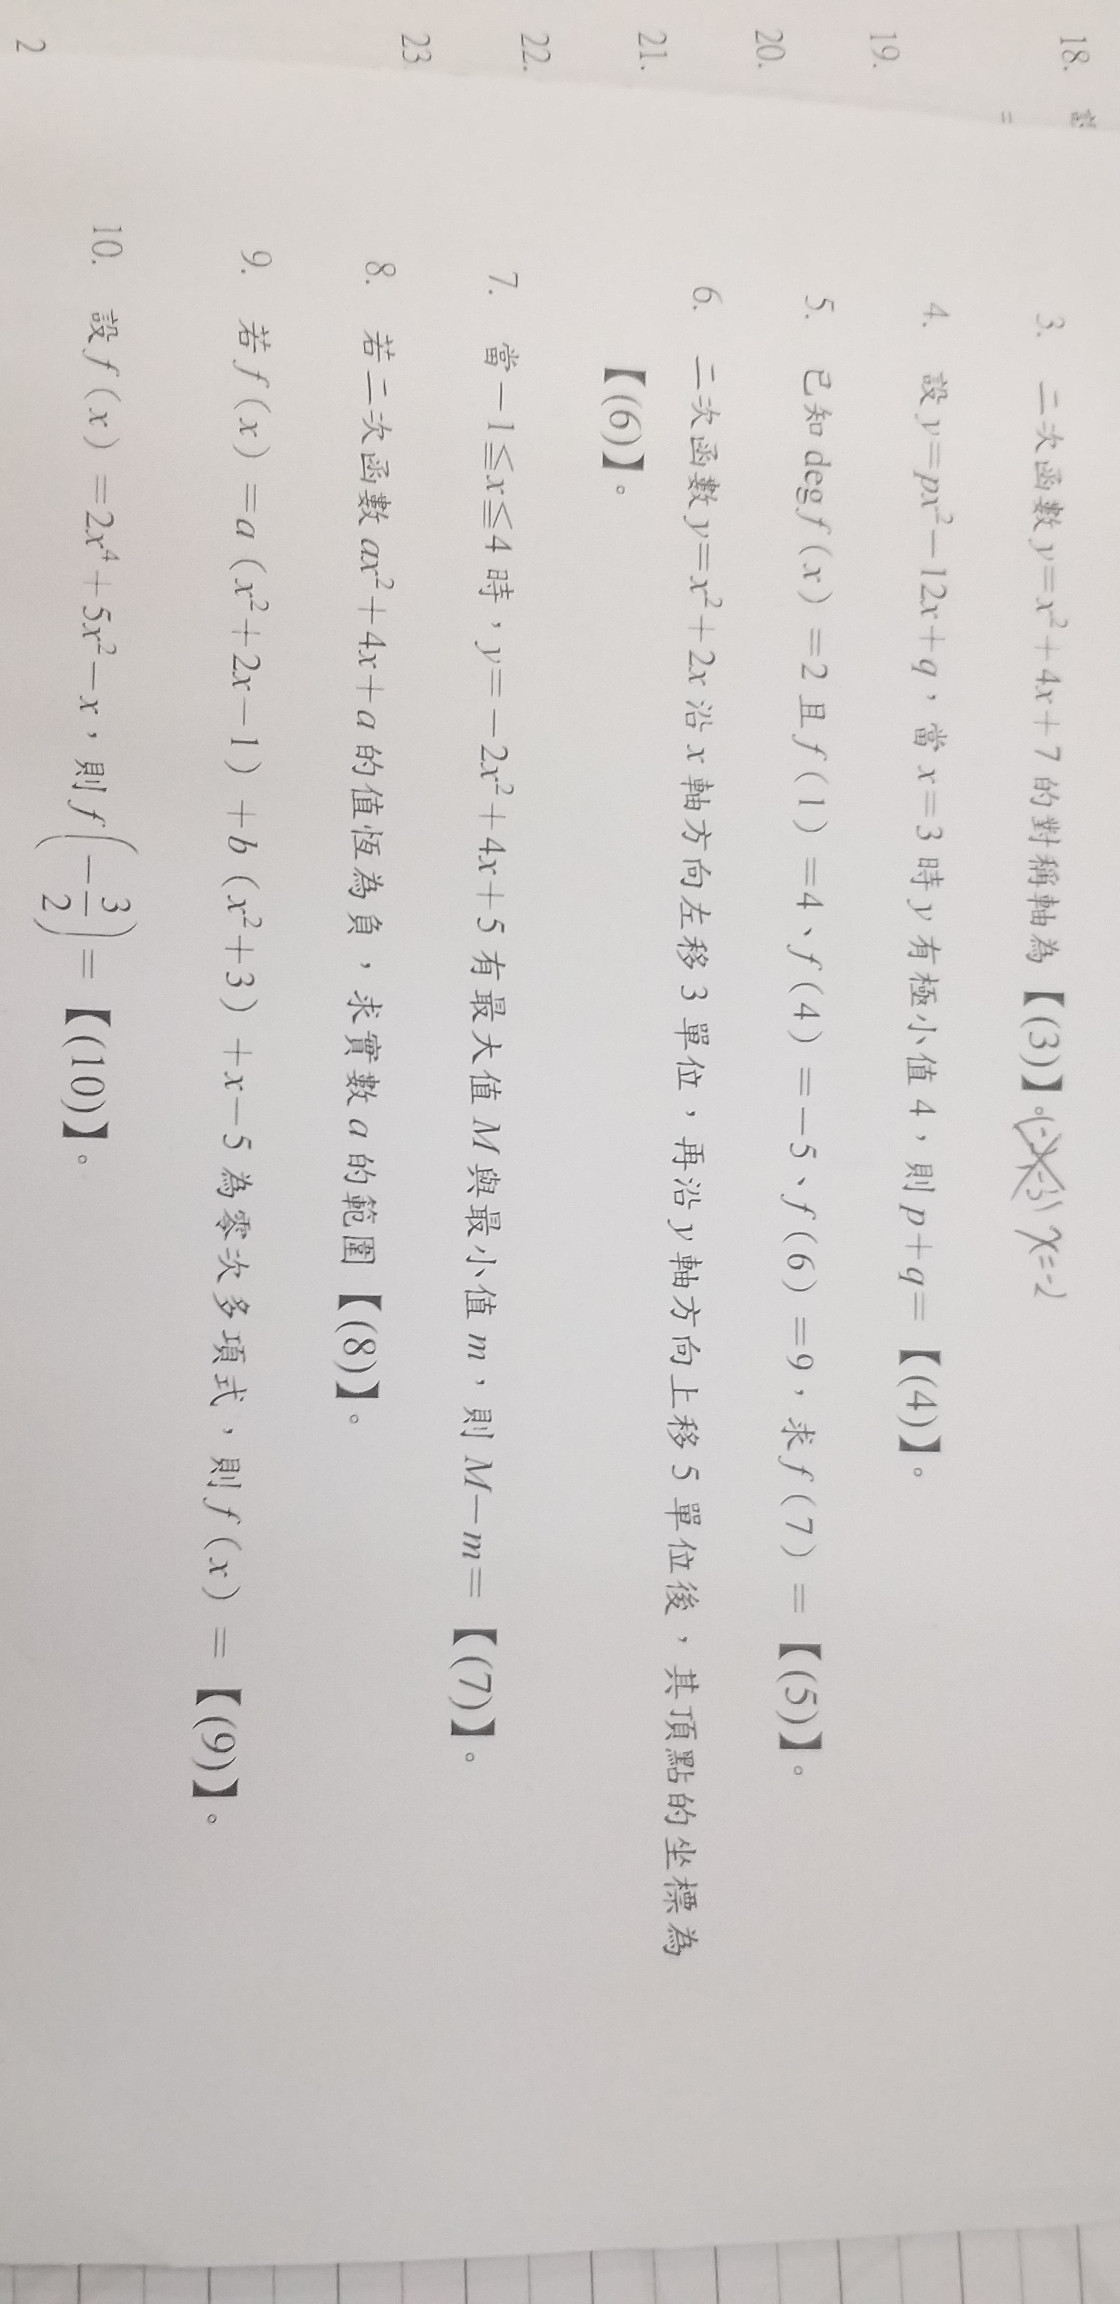 18.
19.
20.
21.
22.
23
2
3. 二次函數 y=x²+4x+7 的對稱軸為【(3)】。 x=-2
4. 設 y=px²-12x+q，當 x=3 時 y 有極小值 4，則 p+q=【(4)】。
5. 已知 deg f(x)=2 且 f(1)=4、f(4)=-5、f(6)=9，求 f(7)=【(5)】。
6. 二次函數 y=x²+2x 沿 x 軸方向左移 3 單位，再沿 y 軸方向上移 5 單位後，其頂點的坐標為
【(6)】。
7. 當 -1≦x≦4 時，y=-2x²+4x+5 有最大值 M 與最小值 m，則 M-m=【(7)】。
8. 若二次函數 ax²+4x+a 的值恆為負，求實數 a 的範圍【(8)】。
9. 若 f(x)=a(x²+2x-1)+b(x²+3)+x-5 為零次多項式，則 f(x)=【(9)】。
10. 設 f(x)=2x⁴+5x²-x，則 f(-3/2)=【(10)】。